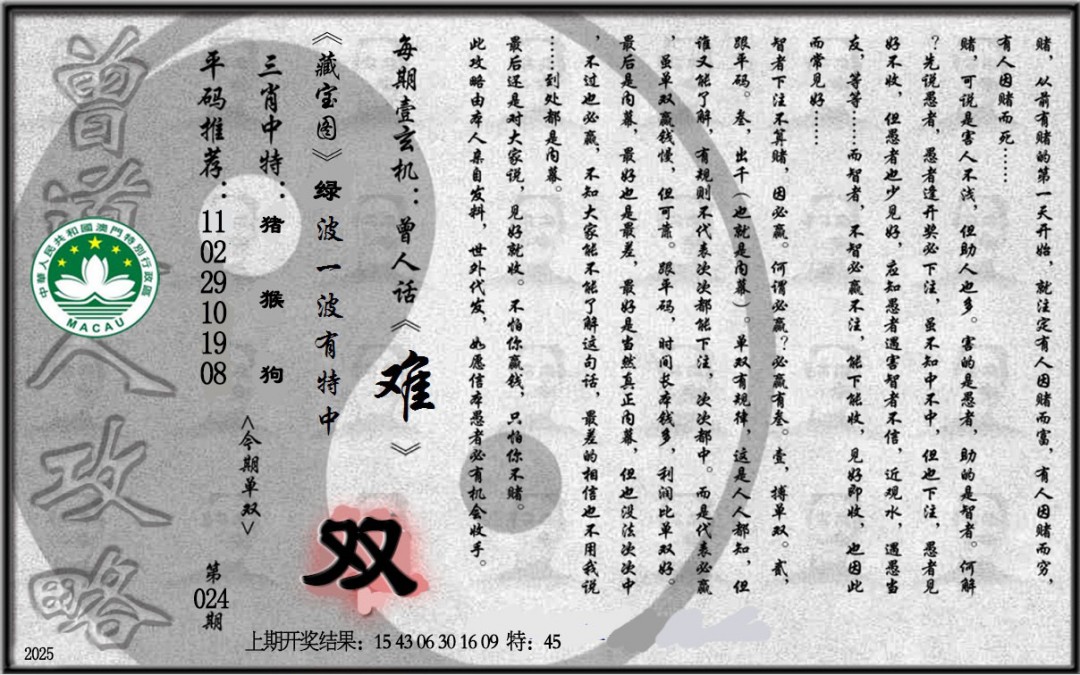 赌，从前有赌的第一天开始，就注定有人因赌而富，有人因赌而穷，
有人因赌而死……
赌，可说是害人不浅，但助人也多。害的是愚者，助的是智者。何解
？先说愚者，愚者逢开奖必下注，虽不知中不中，但也下注，愚者见
好不收，但愚者也少见好，应知愚者遇害智者不信，近观水，遇愚当
友，等等……而智者，不智必赢不注，能下能收，见好即收，也因此
而常见好……
智者下注不算赌，因必赢。何谓必赢？必赢有叁。壹，搏单双。贰，
跟平码。叁，出千（也就是内幕）。单双有规律，这是人人都知，但
谁又能了解，有规则不代表次次都能下注，次次都中。而是代表必赢
，虽单双赢钱慢，但可靠。跟平码，时间长本钱多，利润比单双好。
最后是内幕，最好也是最差，最好是当然真正内幕，但也没法次次中
，不过也必赢，不知大家能不能了解这句话，最差的相信也不用我说
……到处都是内幕。
最后还是对大家说，见好就收。不怕你赢钱，只怕你不赌。
此攻略由本人亲自发料，世外代发，如愿信本愚者必有机会收手。
每期壹玄机：曾人话《难》
《藏宝图》绿波一波有特中
双
三肖中特：猪 猴 狗
<今期单双>
平码推荐：11 02 29 10 19 08
第024期
曾道人攻略
中華人民共和國澳門特別行政區
MACAU
上期开奖结果：15 43 06 30 16 09 特：45
2025